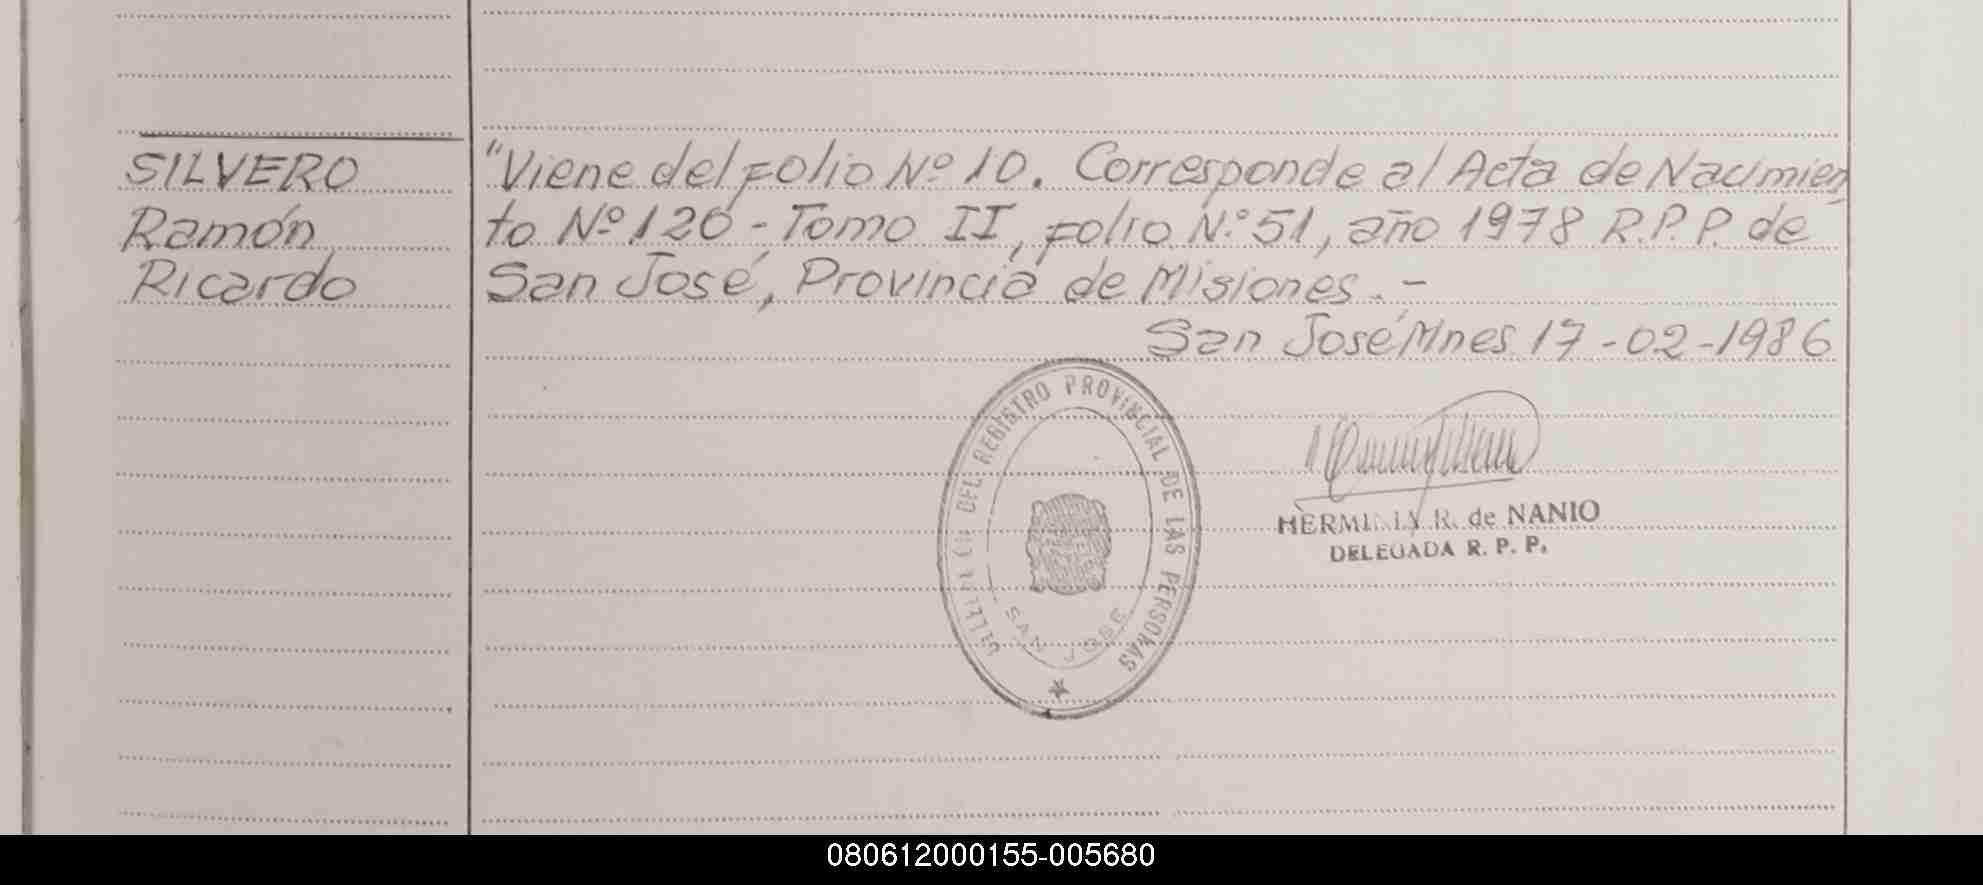 SILVERO
Ramón
Ricardo
"Viene del Folio Nº 10. Corresponde al Acta de Nacimien
to Nº 120 - Tomo II, Folio N.º 51, año 1978 R.P.P. de
San José, Provincia de Misiones. -
San José Mnes 17-02-1986
DEL REGISTRO PROVINCIAL DE LAS PERSONAS
SAN JOSE
HERMINIA R. de NANIO
DELEGADA R. P. P.
080612000155-005680